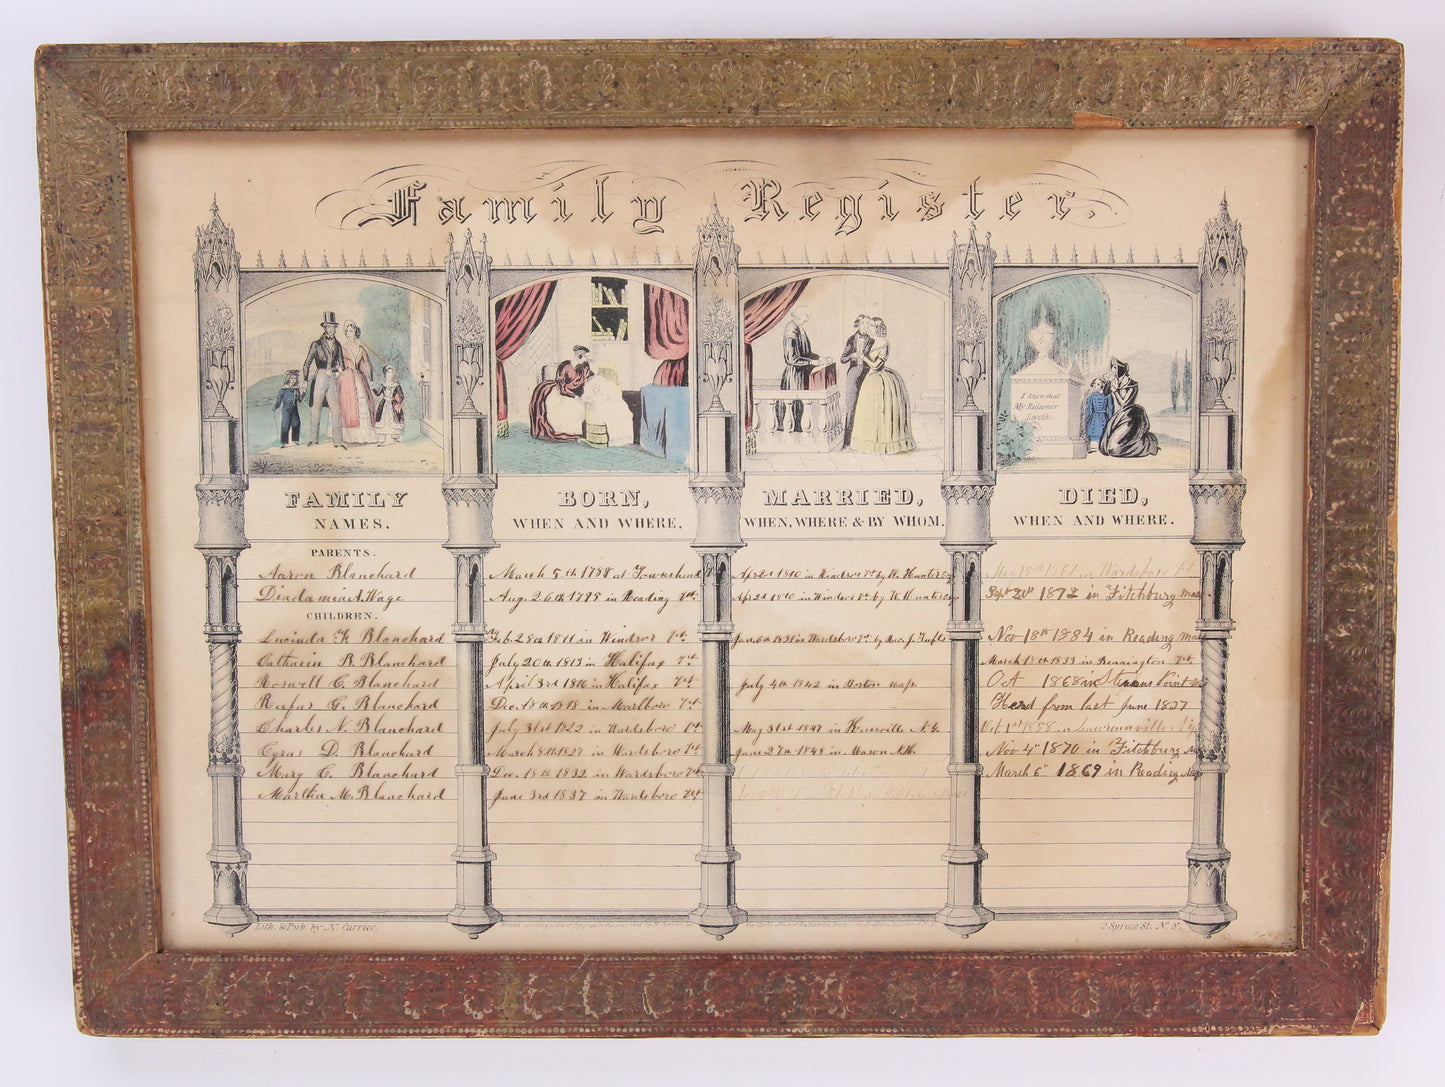 Family Register.
I know that
My Redeemer
Liveth.
FAMILY
NAMES.
BORN,
WHEN AND WHERE.
MARRIED,
WHEN, WHERE & BY WHOM.
DIED,
WHEN AND WHERE.
PARENTS.
Aaron Blanchard March 5th 1788 at Townshend Apr 2d 1810 in Windsor Vt by W. Hunter Esq in Wardsboro Vt
Diadamia A. Wage Aug. 26th 1795 in Reading Vt. Apr 2d 1810 in Windsor Vt by W. Hunter Esq Sept 20th 1872 in Fitchburg Mass
CHILDREN.
Lucinda F. Blanchard Feb. 28th 1811 in Windsor Vt. Jan. 6th 1831 in Wardsboro Vt. by Rev. J. Tufts Nov 18th 1884 in Reading Mass
Catharin B. Blanchard July 20th 1813 in Halifax Vt. March 18th 1833 in Bennington Vt.
Roswell C. Blanchard April 3rd 1816 in Halifax Vt. July 4th 1842 in Boston Mass. Oct 1868 in Stevens Point
Rufus G. Blanchard Dec. 18th 1818 in Marlboro Vt. Herd from last June 1827
Charles N. Blanchard July 31st 1822 in Wardsboro Vt. May 31st 1847 in Oct 1st 1858 in
Cyrus D. Blanchard March 8th 1827 in Wardsboro Vt. June 27th 1848 in Mason N.H. Nov 4th 1870 in Fitchburg
Mary C. Blanchard Dec. 18th 1832 in Wardsboro Vt. March 6th 1869 in Reading
Martha M. Blanchard June 3rd 1837 in Wardsboro Vt.
Lith. & Pub. by N. Currier,
2 Spruce St. N.Y.